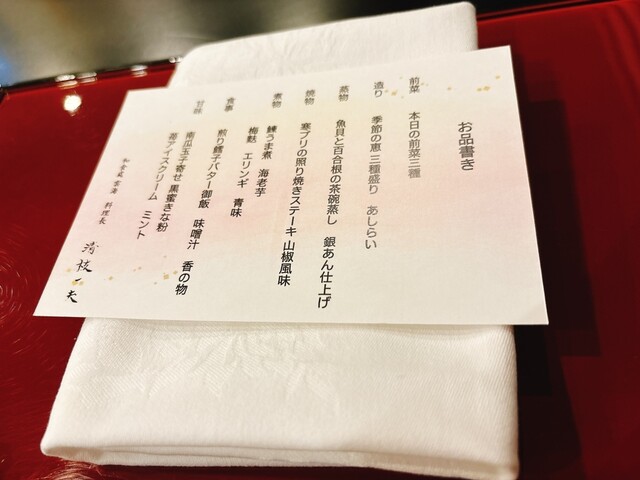 お品書き
前菜 本日の前菜三種
造り 季節の恵 三種盛り あしらい
蒸物 魚貝と百合根の茶碗蒸し 銀あん仕上げ
焼物 寒ブリの照り焼きステーキ 山椒風味
煮物 鰊うま煮 海老芋
梅麩 エリンギ 青味
食事 煎り鱈子バター御飯 味噌汁 香の物
甘味 南瓜玉子寄せ 黒蜜きな粉
苺アイスクリーム ミント
料理長